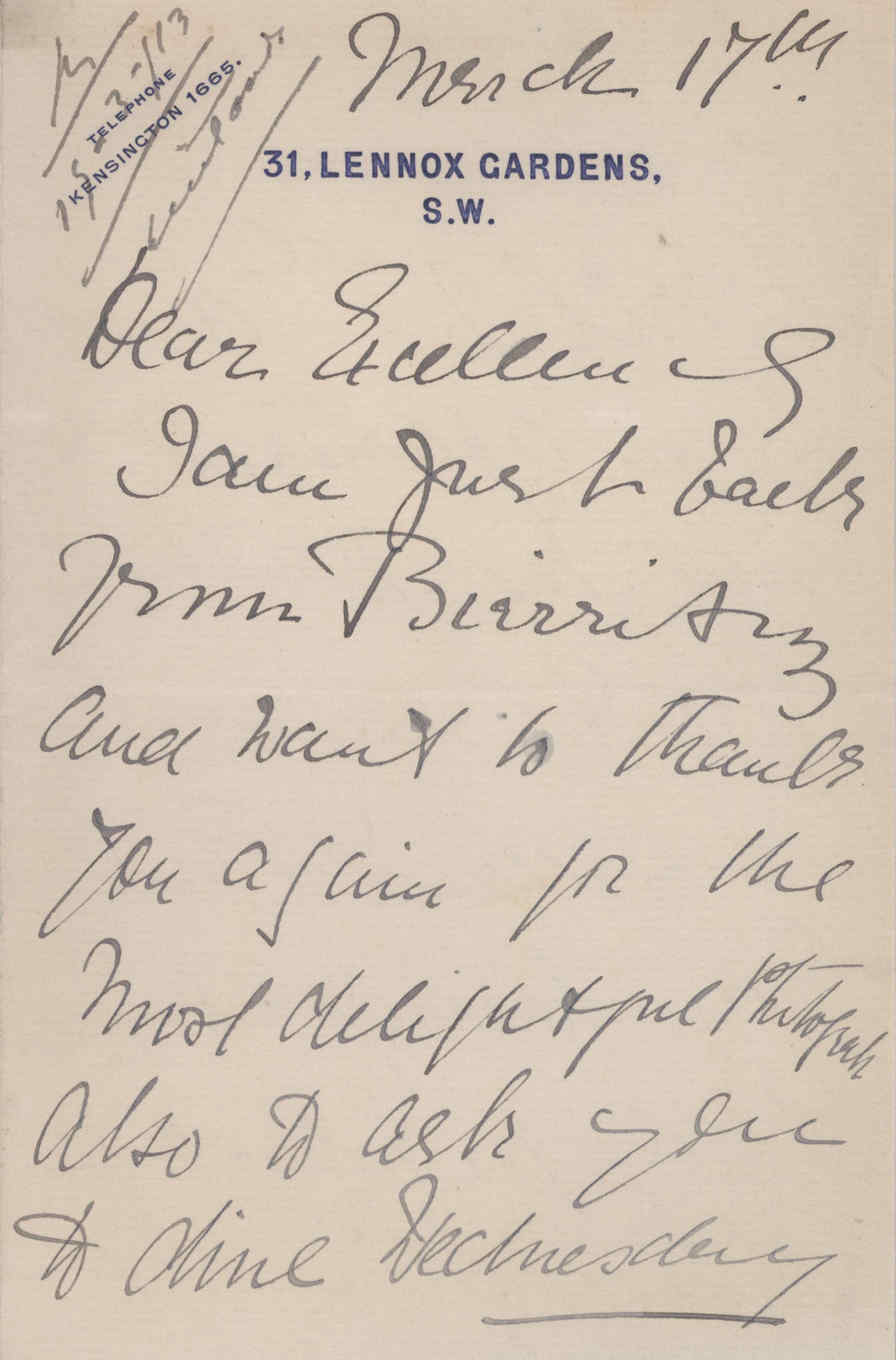 March 17th
TELEPHONE
KENSINGTON 1665.
31, LENNOX GARDENS,
S.W.
Dear Excellency
I am just back
from Biarritz
and want to thank
you again for the
most delightful Photograph
also to ask you
to dine Wednesday